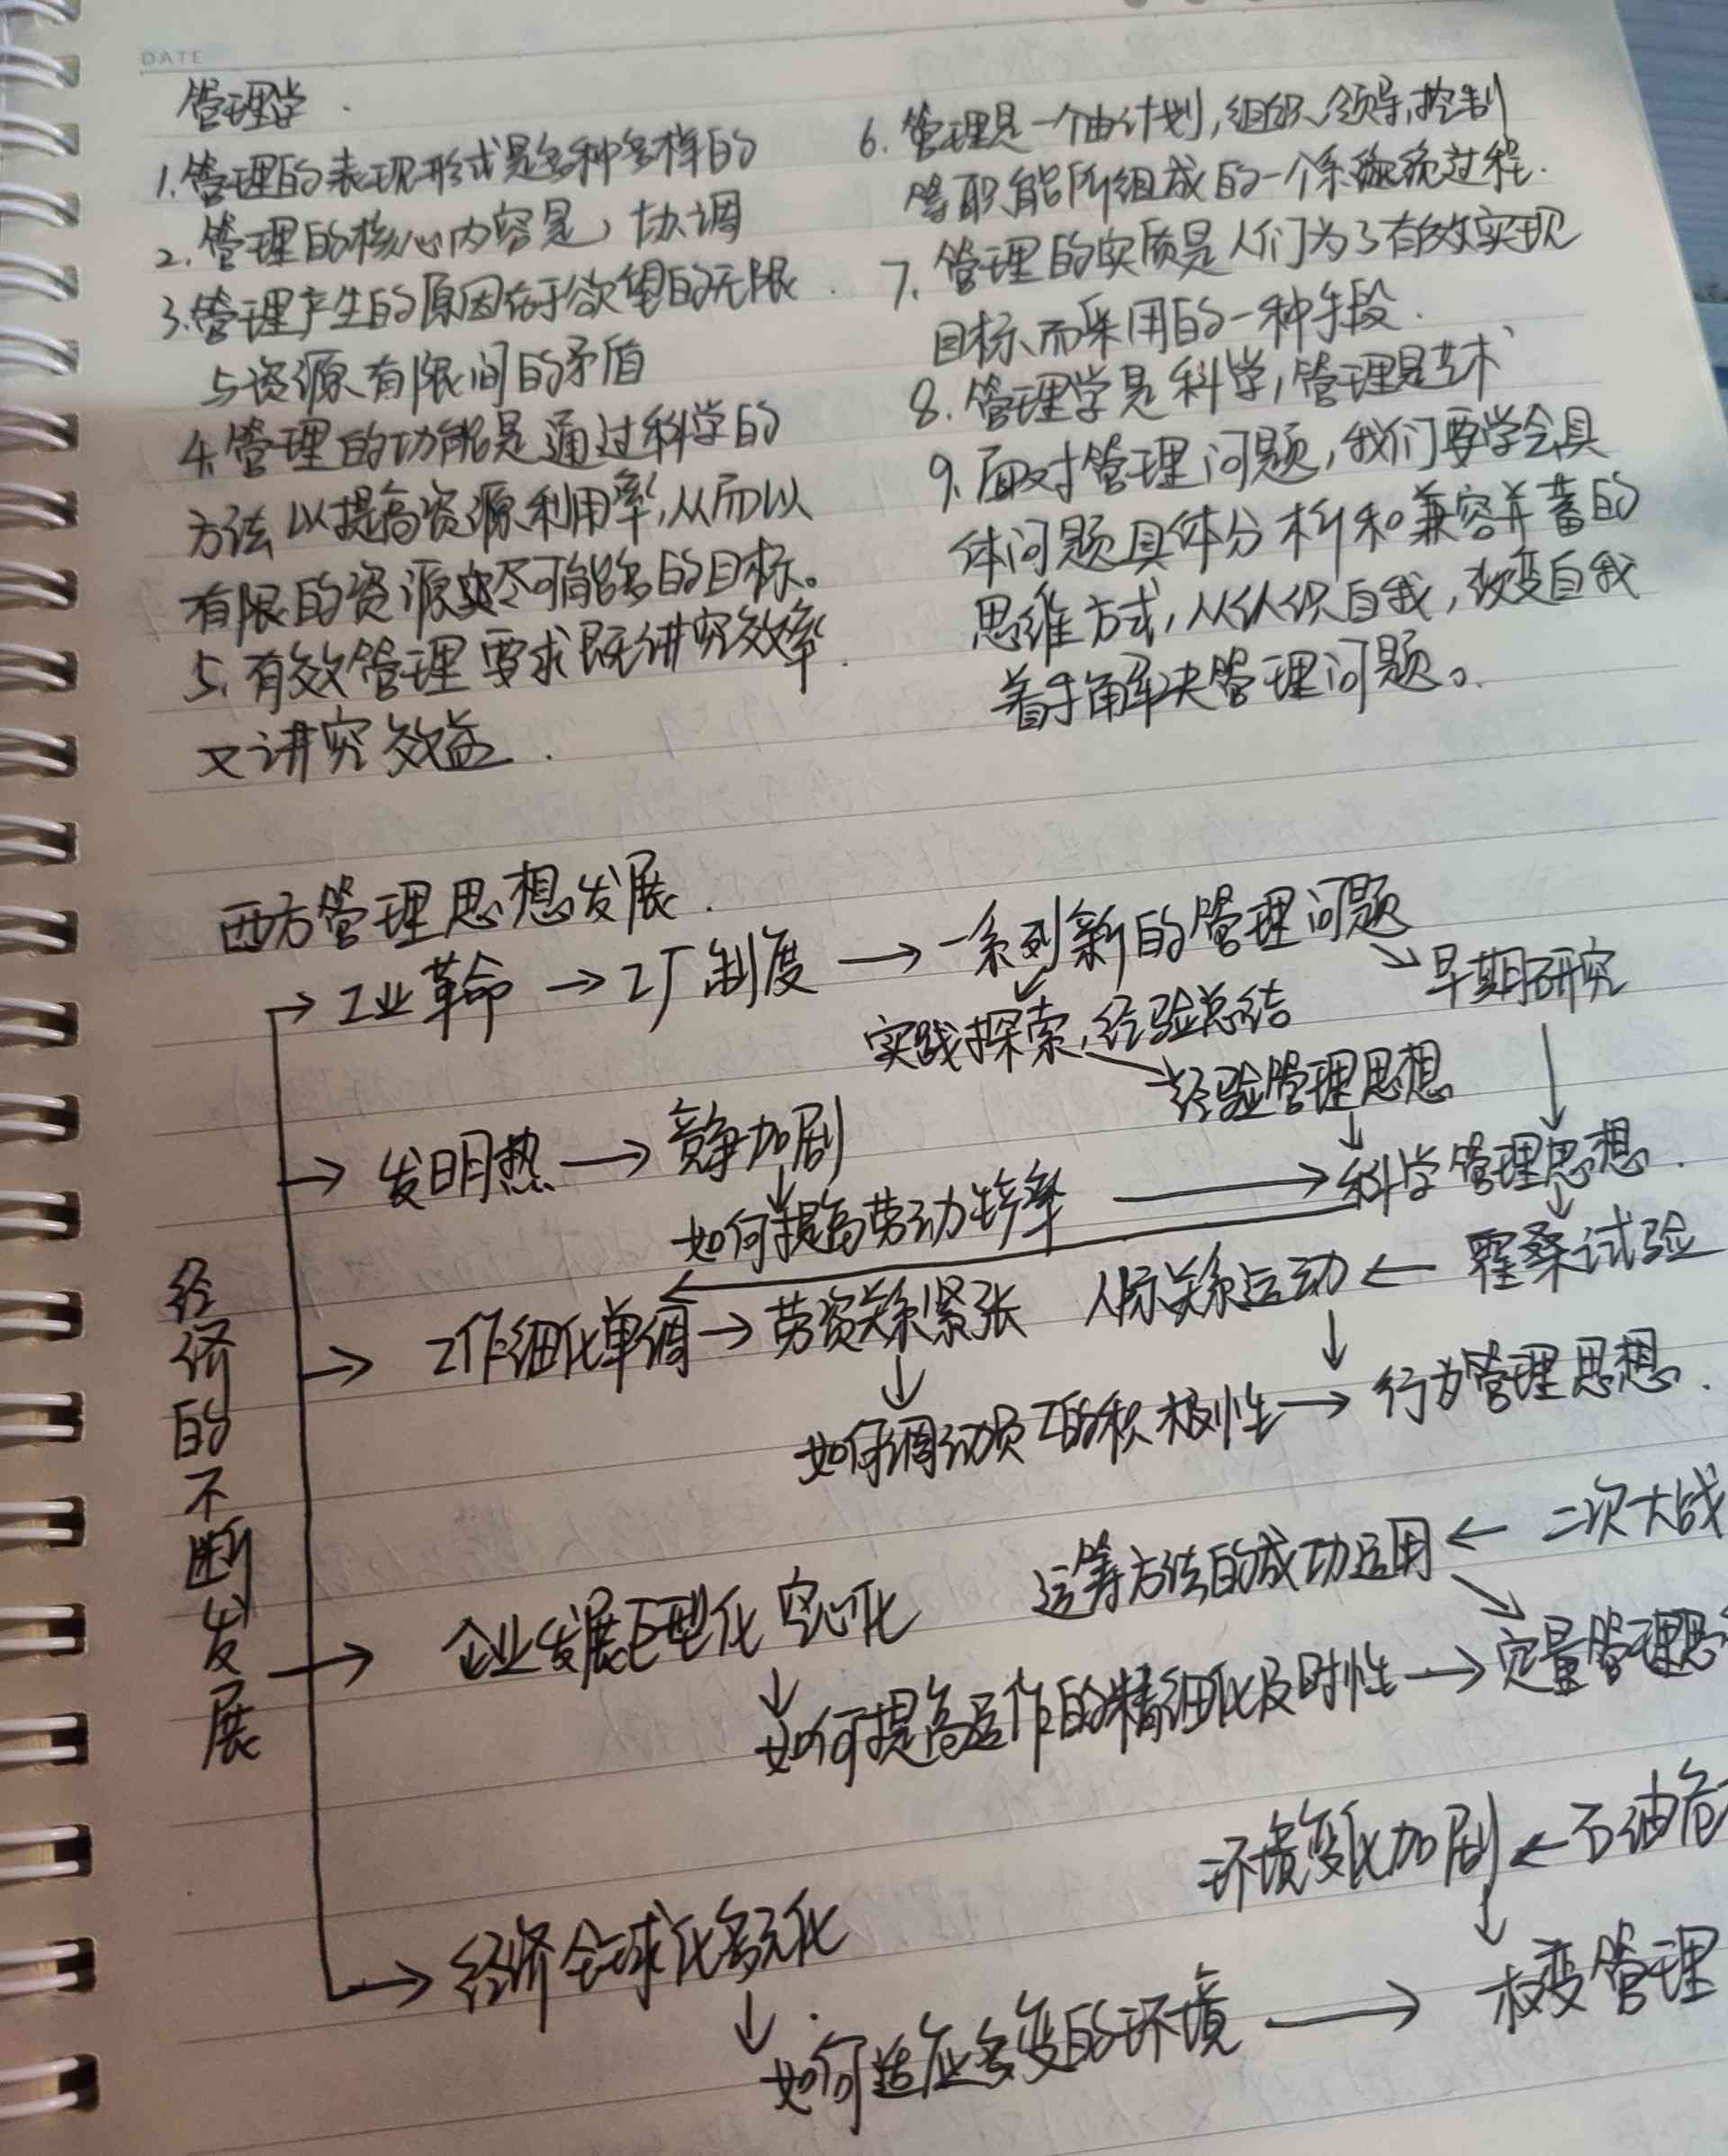 DATE
管理学.
1.管理的表现形式是多种多样的
2.管理的核心内容是,协调
3.管理产生的原因在于欲望的无限
与资源有限间的矛盾
4.管理的功能是通过科学的
方法以提高资源利用率,从而以
有限的资源实尽可能多的目标。
5.有效管理要求既讲究效率
又讲究效益.
6.管理是一个由计划,组织、领导,控制
等职能所组成的一个系统过程.
7.管理的实质是人们为了有效实现
目标而采用的一种手段.
8.管理学是科学,管理是艺术
9.面对管理问题,我们要学会具
体问题具体分析和兼容并蓄的
思维方式,从认识自我,改变自我
着手解决管理问题。
西方管理思想发展.
经济的不断发展
→工业革命→工厂制度→一系列新的管理问题
↘早期研究
实践探索,经验总结
经验管理思想
→发明热→竞争加剧
如何提高劳动生产率→科学管理思想.
→工作细化单调→劳资关系紧张 人际关系运动←霍桑试验
如何调动员工的积极性→行为管理思想.
运筹方法的成功运用←二次大战
→企业发展巨型化 空心化
如何提高运作的精细化及时性→定量管理思
环境变化加剧←石油危
→经济全球化多元化
如何适应多变的环境→权变管理